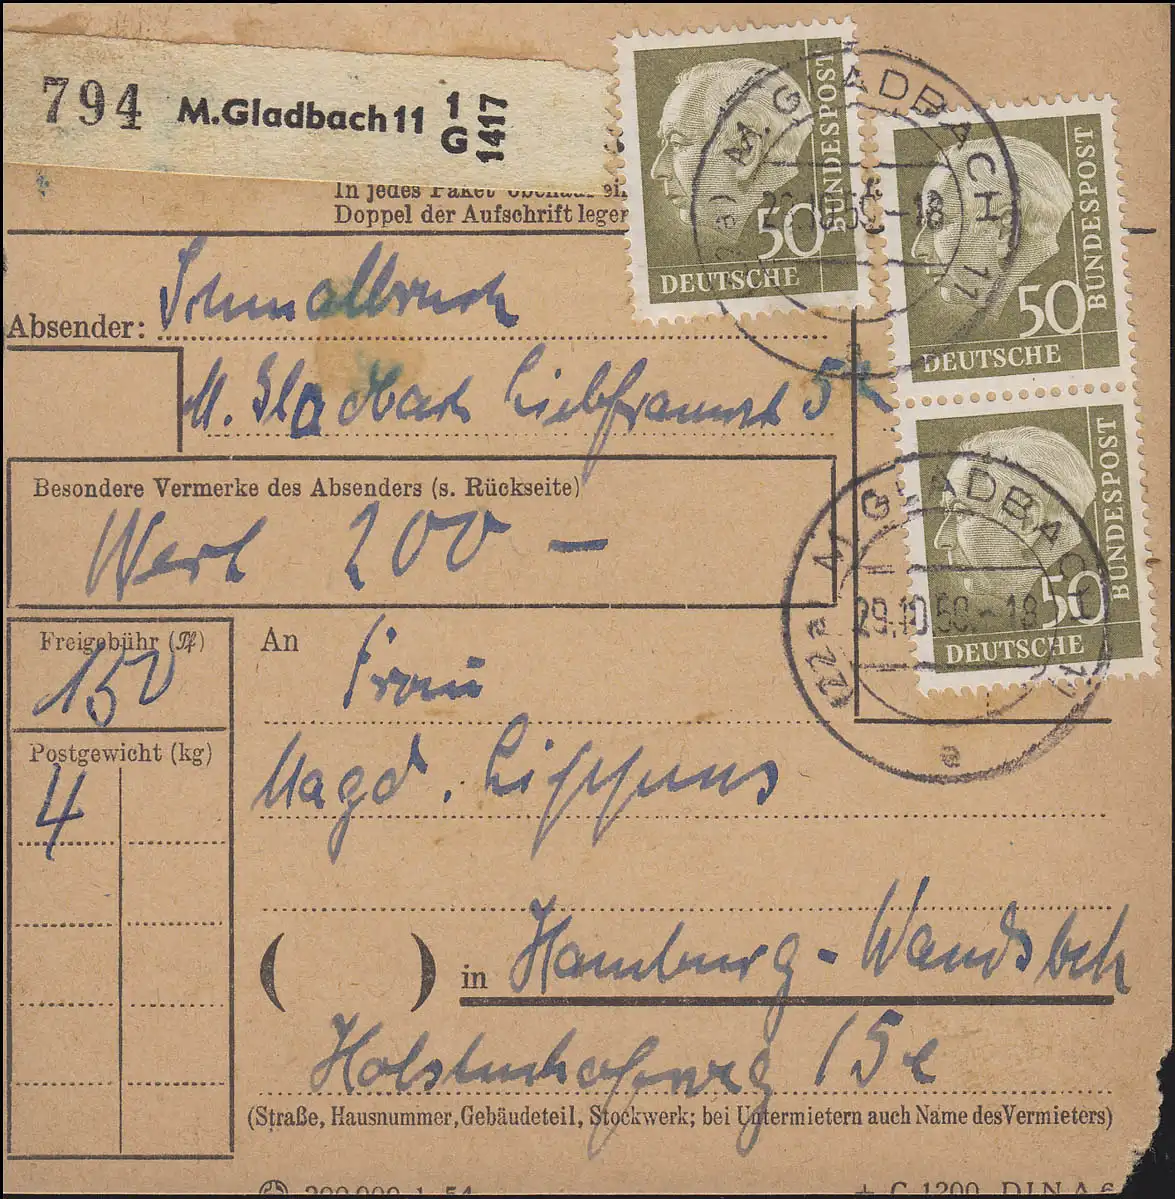 794 M.Gladbach 11 1 G 1417
In jedes Paket obenauf ein
Doppel der Aufschrift legen
50 BUNDESPOST
DEUTSCHE
50 BUNDESPOST
DEUTSCHE
50 BUNDESPOST
DEUTSCHE
M. GLADBACH 11
29.10.59.-18
(22a) M. GLADBACH 11
29.10.59.-18
a
Absender:
M. Gladbach Liebfrauenstr 52
Besondere Vermerke des Absenders (s. Rückseite)
Wert 200 —
Freigebühr (Pf)
150
Postgewicht (kg)
4
An
Frau
Magd. Lippens
( ) in Hamburg-Wandsbek
Holstenhofweg 15e
(Straße, Hausnummer, Gebäudeteil, Stockwerk; bei Untermietern auch Name des Vermieters)
200 000 1. 54
+ C 1200 DIN A 6